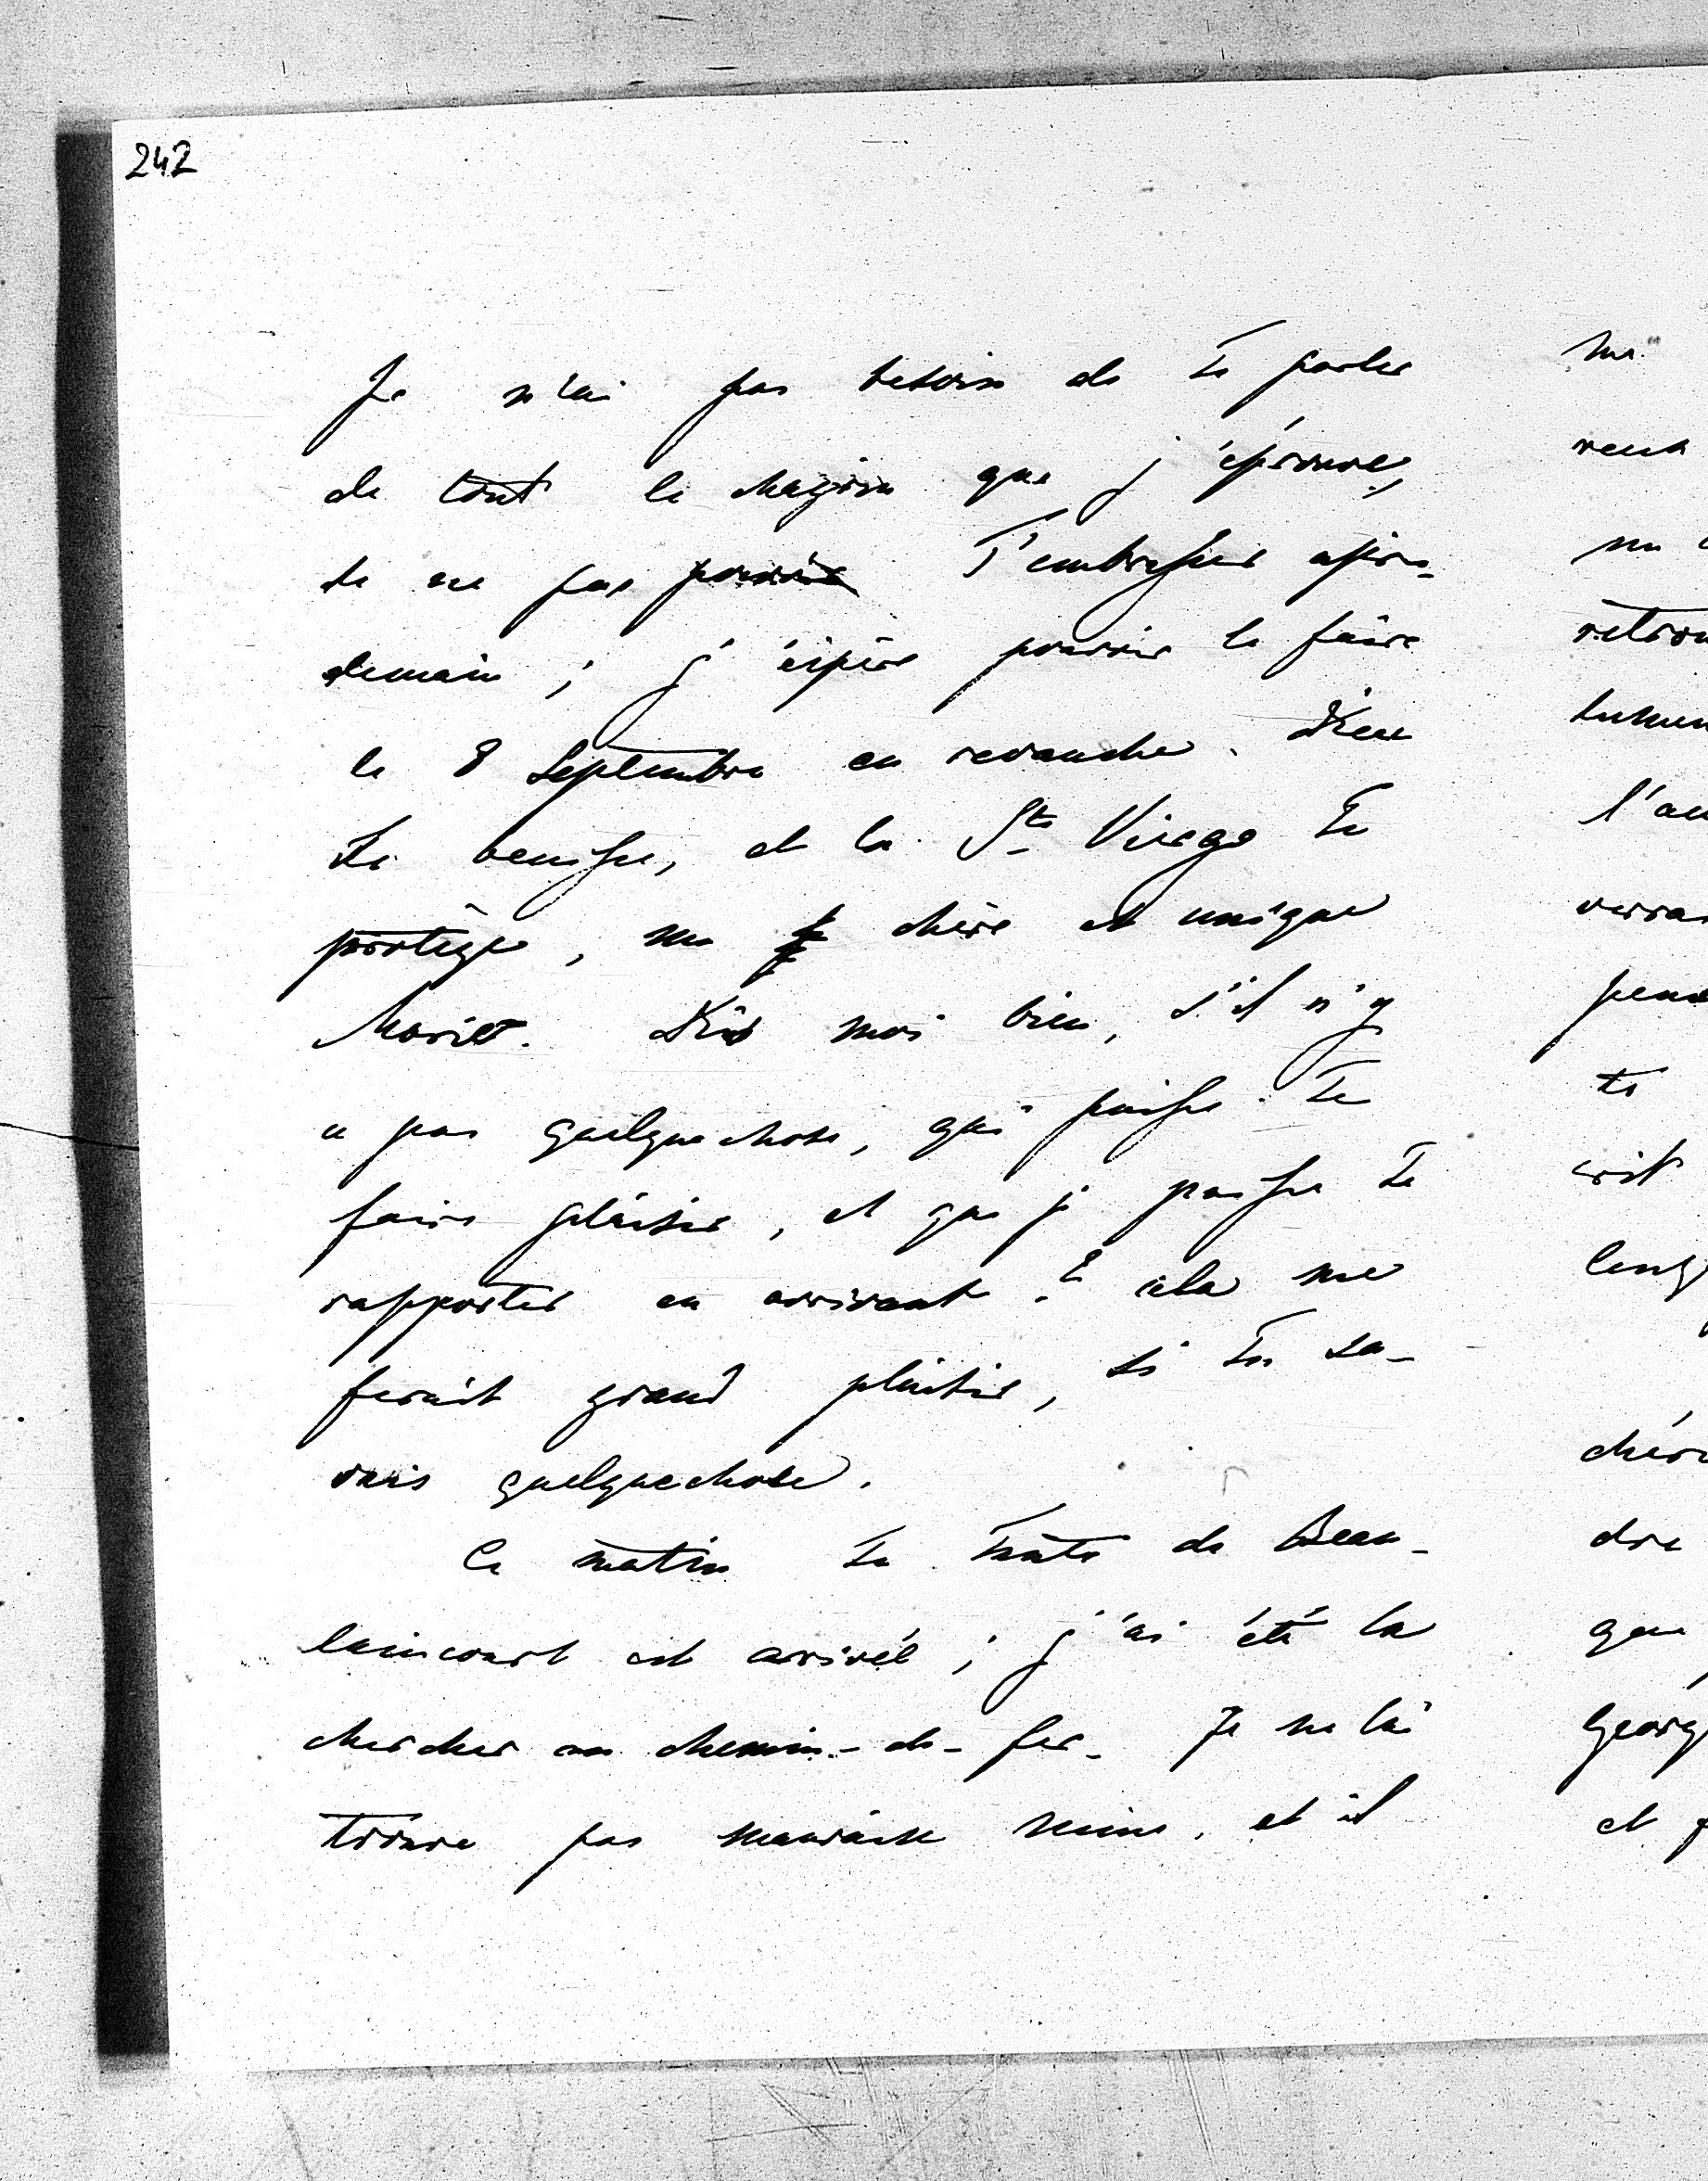 242
Je n'ai pas besoin de te parler
de tout le chagrin que j'éprouve,
de ne pas pouvoir t'embrasser après-
demain ; j'espère pouvoir le faire
le 8 Septembre en revanche. Dieu
te benisse, et la Ste Vierge te
protège, ma chère et unique
Marie. Dis moi bien, s'il n'y
a pas quelquechose, qui puisse te
faire plaisir, et que je puisse te
rapporter en arrivant. cela me
ferait grand plaisir, si tu sa-
vais quelquechose.
Ce matin ta Tante de Beau-
laincourt est arrivée ; j'ai été la
chercher au chemin-de-fer. Je ne lui
trouve pas mauvaise mine, et il
ma
veux
retrou
l'au
verras
te
crit
long
dre
que
et